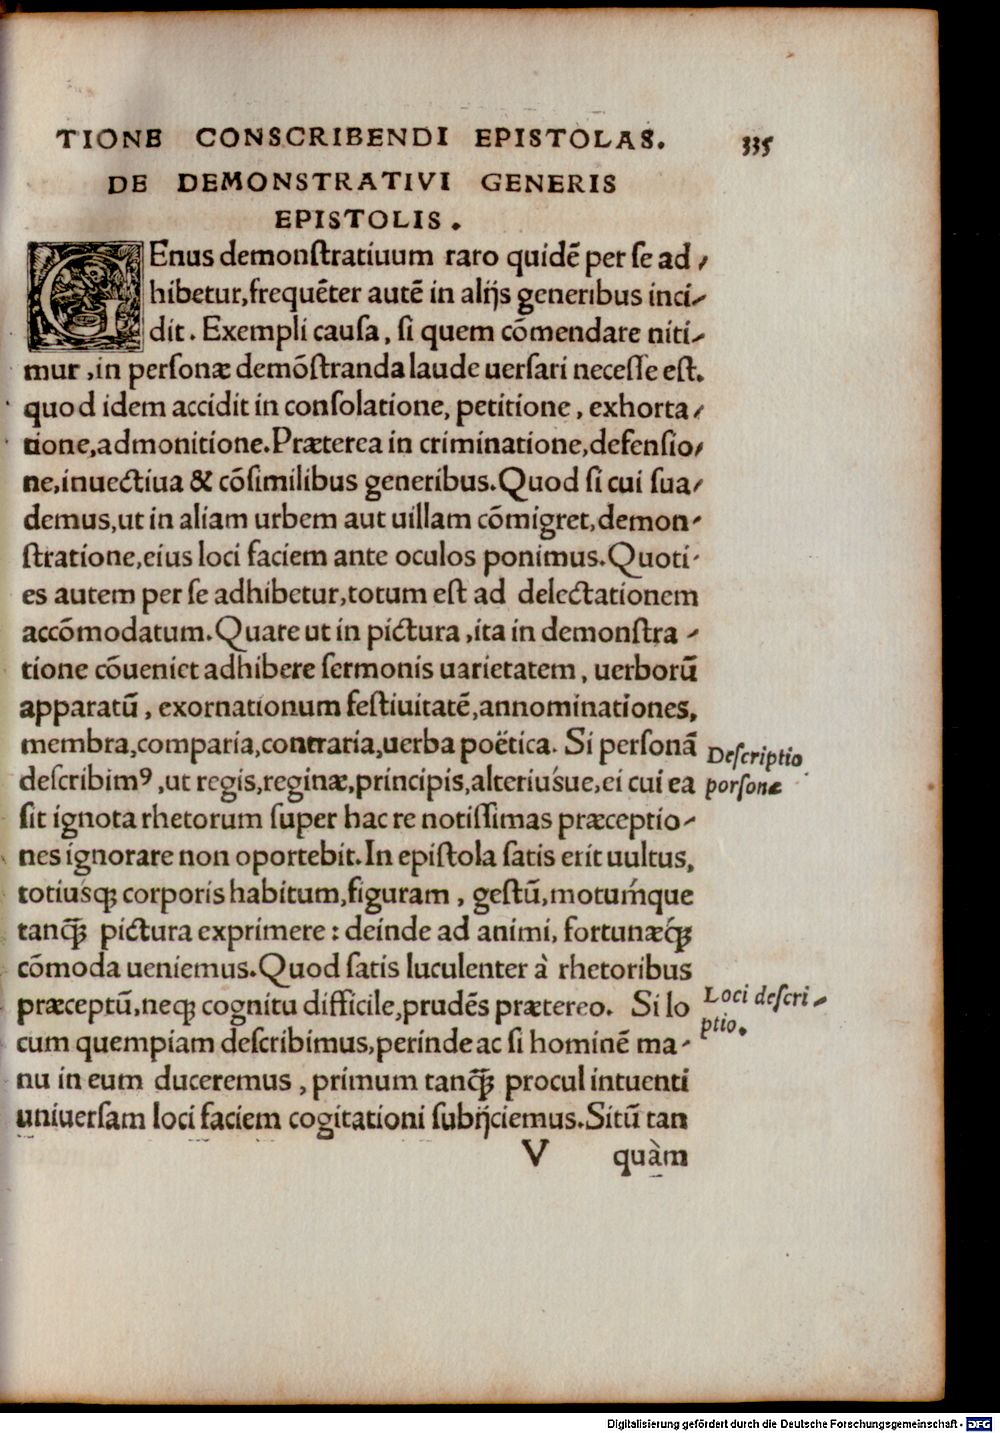 TIONE CONSCRIBENDI EPISTOLAS. 335
DE DEMONSTRATIVI GENERIS
EPISTOLIS.
GEnus demonſtratiuum raro quidē per ſe ad⸗
hibetur,frequēter autē in alijs generibus inci⸗
dit. Exempli cauſa, ſi quem cōmendare niti⸗
mur ,in perſonæ demōſtranda laude uerſari neceſſe eſt.
quod idem accidit in conſolatione, petitione, exhorta⸗
tione,admonitione.Præterea in criminatione,defenſio⸗
ne,inuectiua & cōſimilibus generibus.Quod ſi cui ſua⸗
demus,ut in aliam urbem aut uillam cōmigret,demon⸗
ſtratione,eius loci faciem ante oculos ponimus.Quoti⸗
es autem per ſe adhibetur,totum eſt ad delectationem
accōmodatum.Quare ut in pictura ,ita in demonſtra⸗
tione cōueniet adhibere ſermonis uarietatem, uerborū
apparatū, exornationum feſtiuitatē,annominationes,
membra,comparia,contraria,uerba poëtica. Si perſonā
Deſcriptio
deſcribimꝰ ,ut regis,reginæ,principis,alteriuśue,ei cui ea
porſonæ
ſit ignota rhetorum ſuper hac re notiſſimas præceptio⸗
nes ignorare non oportebit.In epiſtola ſatis erit uultus,
totiuśqꝫ corporis habitum,figuram, geſtū,motuḿque
tanꝗ̃ pictura exprimere: deinde ad animi, fortunæq́ꝫ
cōmoda ueniemus.Quod ſatis luculenter à rhetoribus
præceptū,neqꝫ cognitu difficile,prudēs prætereo. Si lo
Loci deſcri⸗
ptio.
cum quempiam deſcribimus,perinde ac ſi hominē ma⸗
nu in eum duceremus, primum tanꝗ̃ procul intuenti
uniuerſam loci faciem cogitationi ſubijciemus.Sitū tan
V quàm
Digitalisierung gefördert durch die Deutsche Forschungsgemeinschaft - DFG